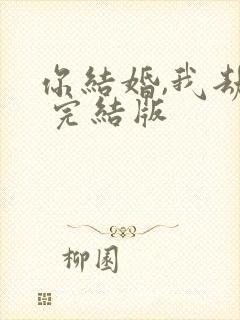 你結婚,我劫
完結版
柳園